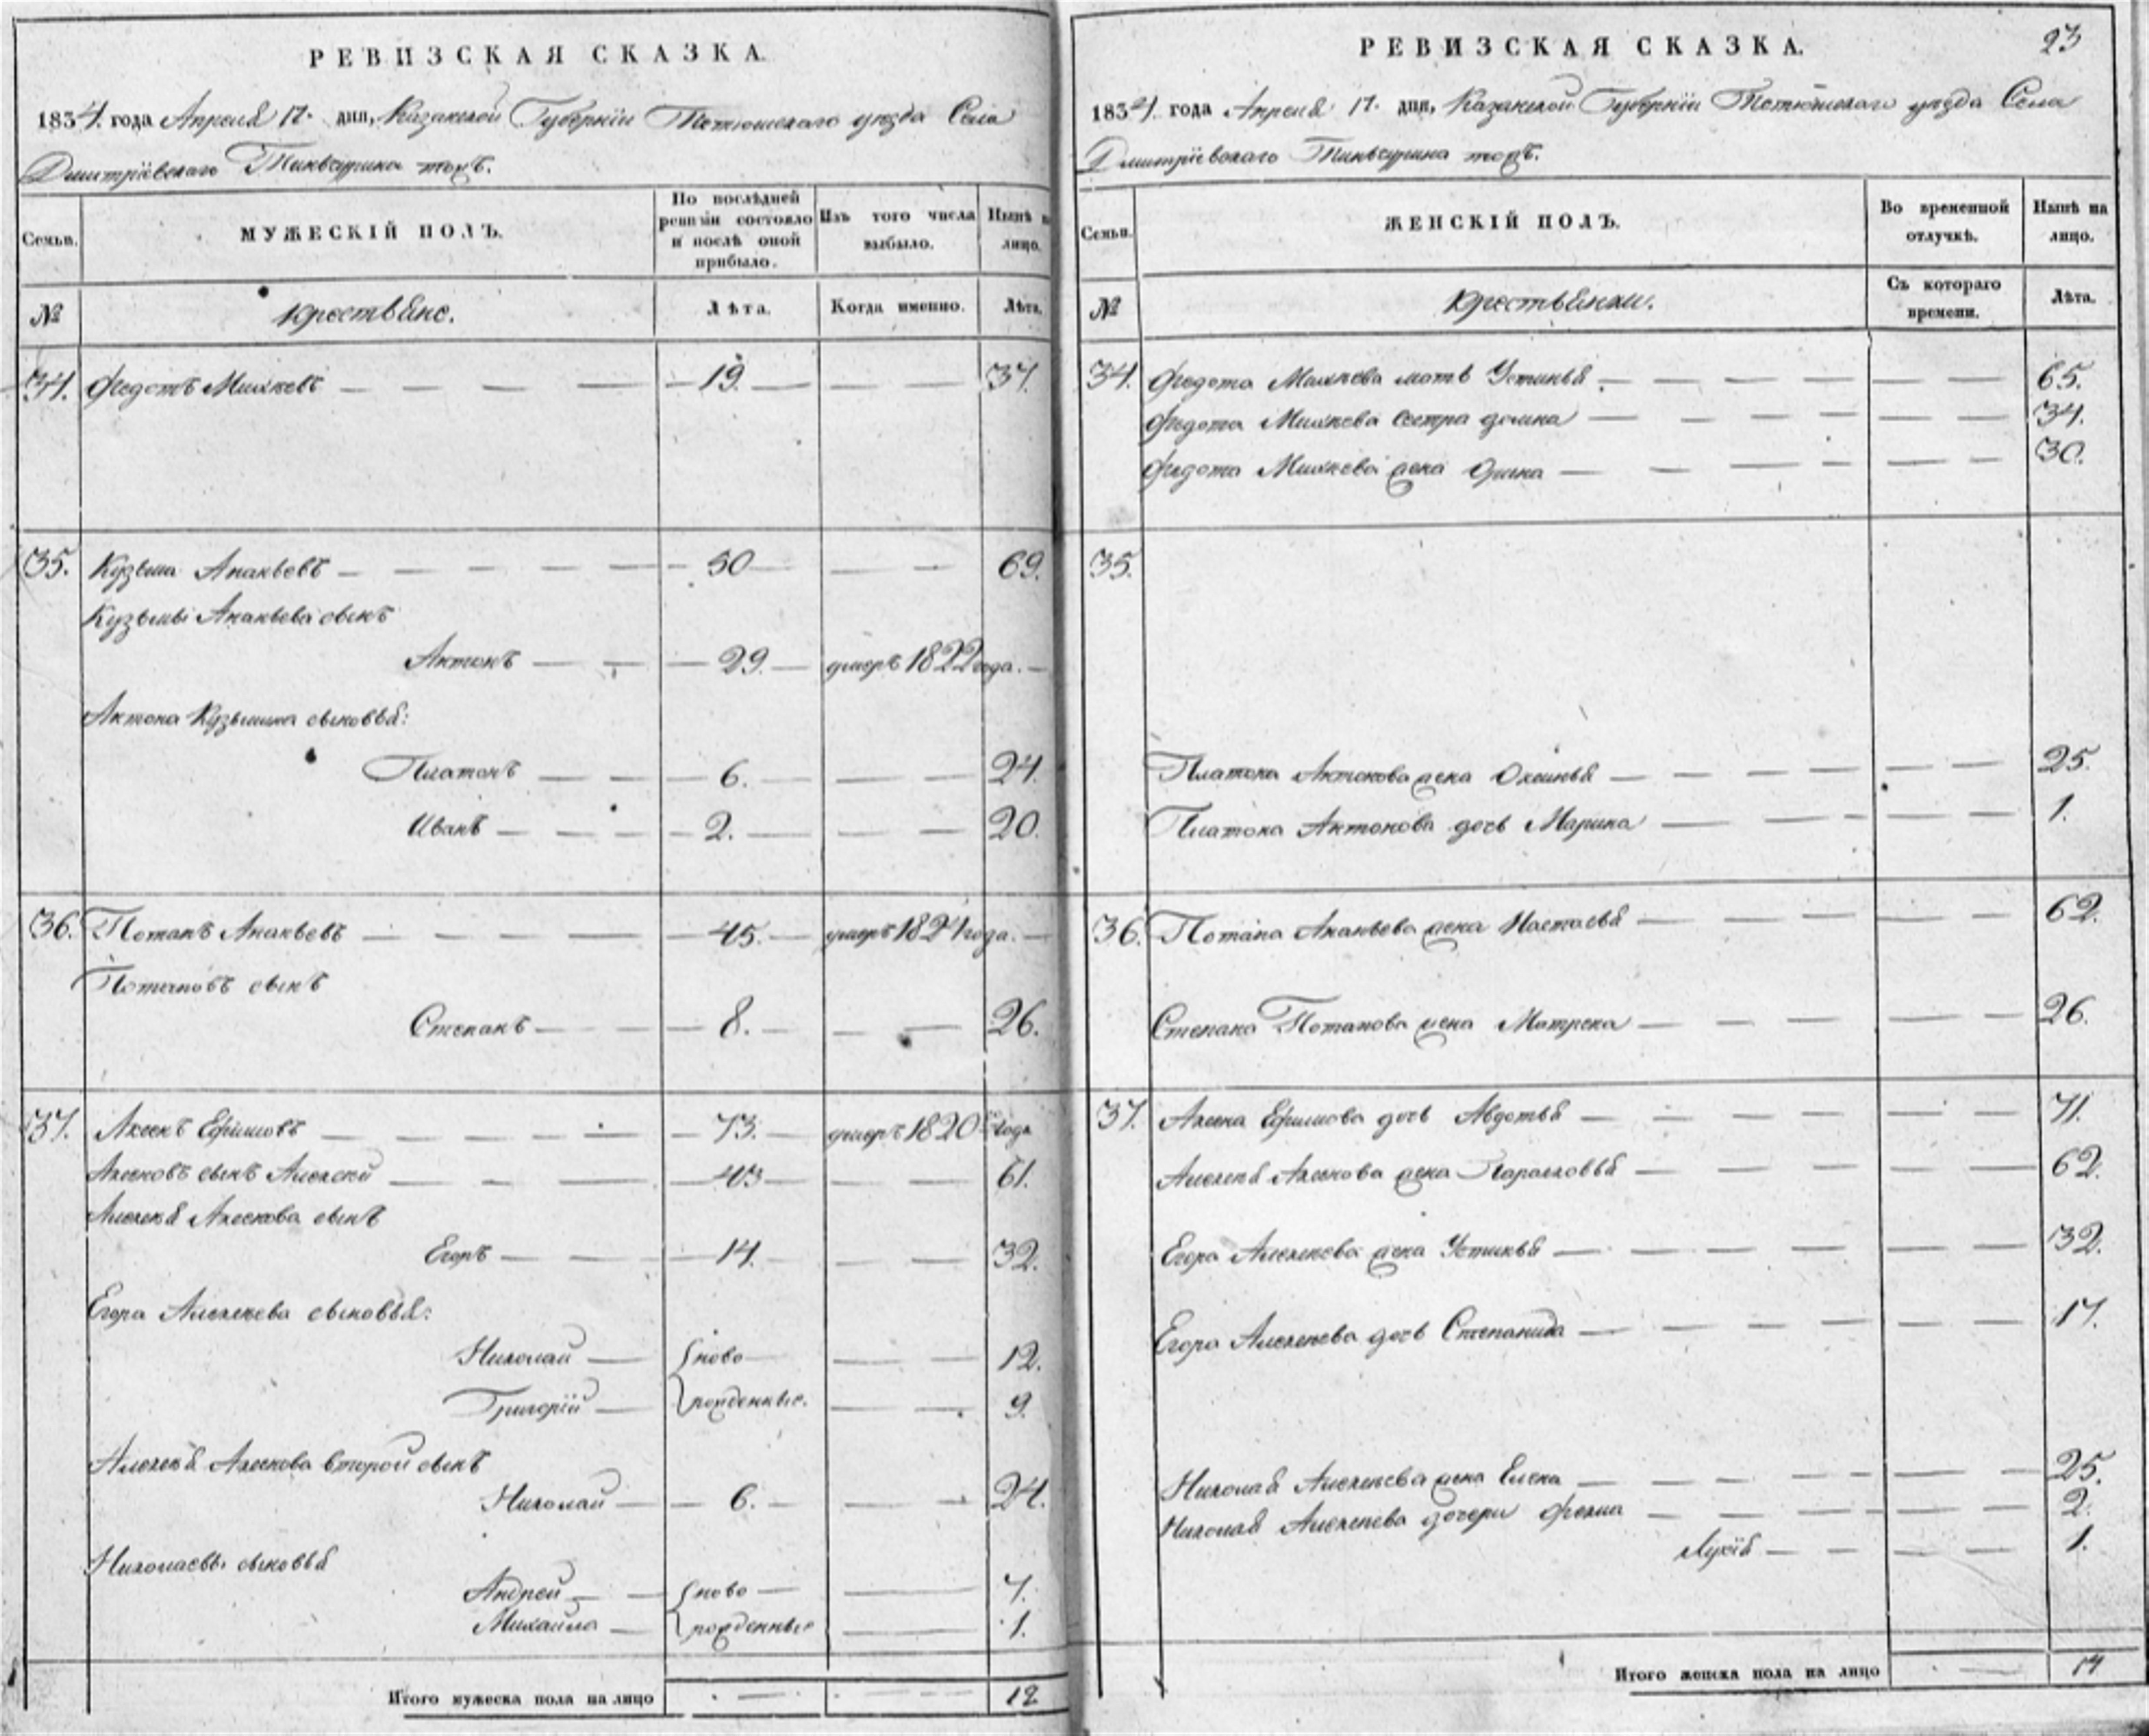 РЕВИЗСКАЯ СКАЗКА.
1834. года Апреля 17. дня, Казанской Губернiи Тетюшскаго уезда Села
Дмитрiевскаго Тиньчурина тожъ.
Семьи.
МУЖЕСКІЙ ПОЛЪ.
По послѣдней ревизіи состояло и послѣ оной прибыло.
Изъ того числа выбыло.
Нынѣ на лицо.
№
Крестьяне.
Лѣта.
Когда именно.
Лѣта.
34. Федотъ Михѣевъ — 19. — 37.
35. Кузьма Ананьевъ — 50 — 69.
Кузьмы Ананьева сынъ
Антонъ — 29. — умеръ 1822 года. —
Антона Кузьмина сыновья:
Платонъ — 6. — 24.
Иванъ — 2. — 20.
36. Потапъ Ананьевъ — 45. — умеръ 1824 года. —
Потаповъ сынъ
Степанъ — 8. — 26.
37. Аксенъ Ефимовъ — 73. — умеръ 1820 года
Аксеновъ сынъ Алексей — 43 — 61.
Алексея Аксенова сынъ
Егоръ — 14. — 32.
Егора Алексеева сыновья:
Николай — ново — 12.
Григорiй — рожденные. — 9.
Алексея Аксенова второй сынъ
Николай — 6. — 24.
Николаевы сыновья
Андрей — ново — 7.
Михайла — рожденные — 1.
Итого мужеска пола на лицо — — 12
23
РЕВИЗСКАЯ СКАЗКА.
1834. года Апреля 17. дня, Казанской Губернiи Тетюшскаго уезда Села
Дмитрiевскаго Тиньчурина тожъ.
Семьи.
ЖЕНСКІЙ ПОЛЪ.
Во временной отлучкѣ.
Нынѣ на лицо.
№
Крестьянки.
Съ котораго времени.
Лѣта.
34. Федота Михѣева мать Устинья — 65.
Федота Михѣева сестра домна — 34.
Федота Михѣева жена Орина — 30.
35.
Платона Антонова жена Оксинья — 25.
Платона Антонова дочь Марина — 1.
36. Потапа Ананьева жена Настасья — 62.
Степана Потапова жена Матрена — 26.
37. Аксена Ефимова дочь Авдотья — 71.
Алексея Аксенова жена Парасковья — 62.
Егора Алексеева жена Устинья — 32.
Егора Алексеева дочь Степанида — 17.
Николая Алексеева жена Елена — 25.
Николая Алексеева дочери Фекла — 2.
Лукiя — 1.
Итого женска пола на лицо — 14